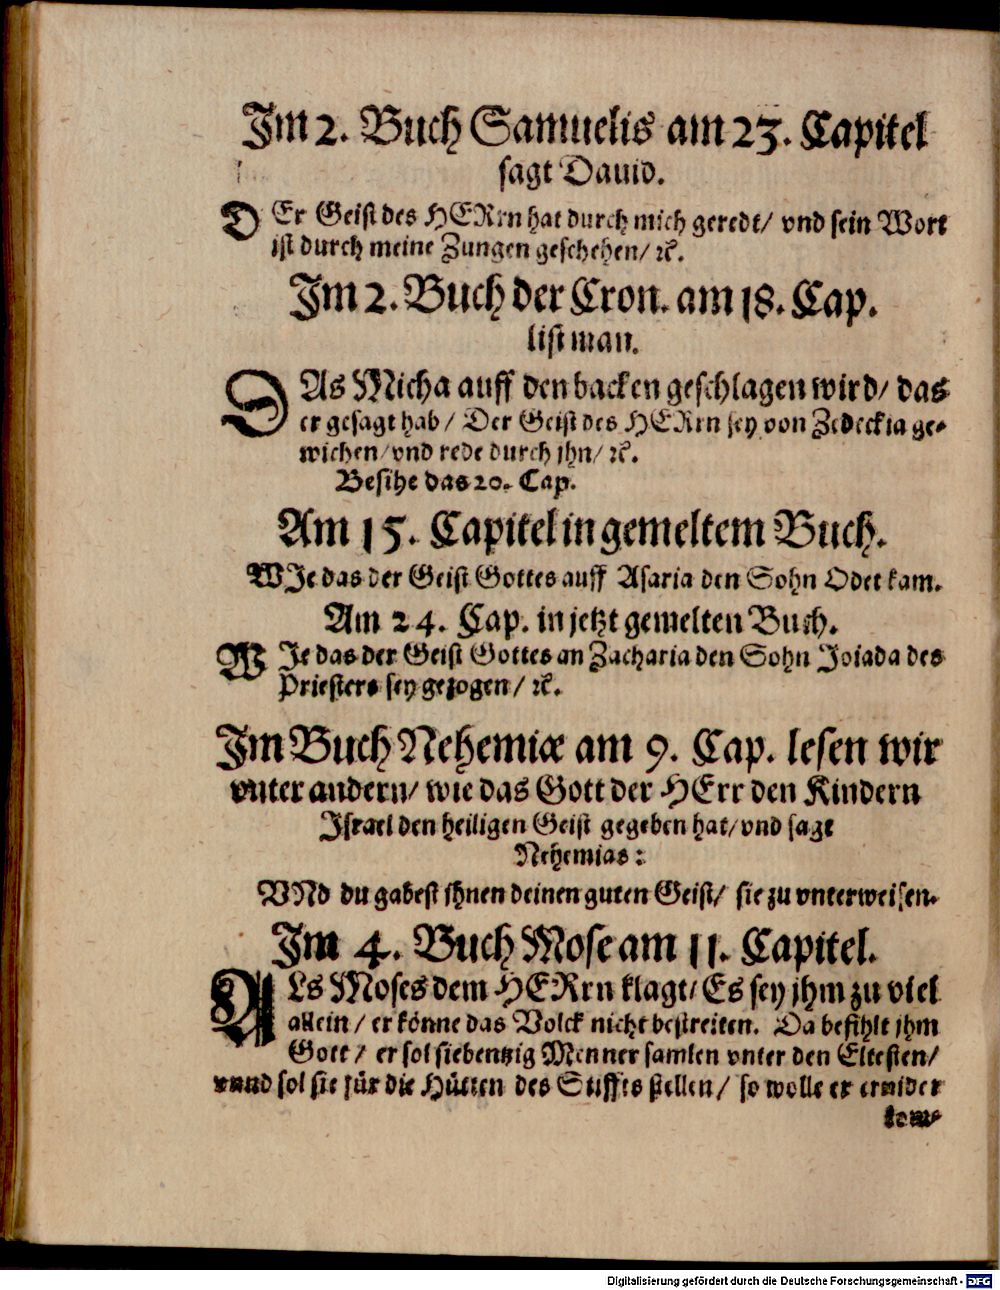 Im 2. Buch Samuelis am 23. Capitel
sagt Dauid.
DEr Geist des HERrn hat durch mich geredt/ vnd sein Wort
ist durch meine Zungen geschehen/ ꝛc.
Im 2. Buch der Cron. am 18. Cap.
list man.
DAs Micha auff den backen geschlagen wird/ das
er gesagt hab/ Der Geist des HERrn sey von Zedeckia ge-
wichen/ vnd rede durch jhn/ ꝛc.
Besihe das 20. Cap.
Am 15. Capitel in gemeltem Buch.
WIe das der Geist Gottes auff Asaria den Sohn Odet kam.
Am 24. Cap. in jetzt gemelten Buch.
WIe das der Geist Gottes an Zacharia den Sohn Joiada des
Priesters sey gezogen/ ꝛc.
Im Buch Nehemiæ am 9. Cap. lesen wir
vnter andern/ wie das Gott der HErr den Kindern
Israel den heiligen Geist gegeben hat/ vnd sagt
Nehemias:
VNd du gabest jhnen deinen guten Geist/ sie zu vnterweisen.
Im 4. Buch Mose am 11. Capitel.
ALs Moses dem HERrn klagt/ Es sey jhm zu viel
allein/ er könne das Volck nicht bestreiten. Da befihlt jhm
Gott/ er sol siebentzig Menner samlen vnter den Eltesten/
vnnd sol sie für die Hütten des Stiffts stellen/ so wolle er ernider
kom-
Digitalisierung gefördert durch die Deutsche Forschungsgemeinschaft - DFG